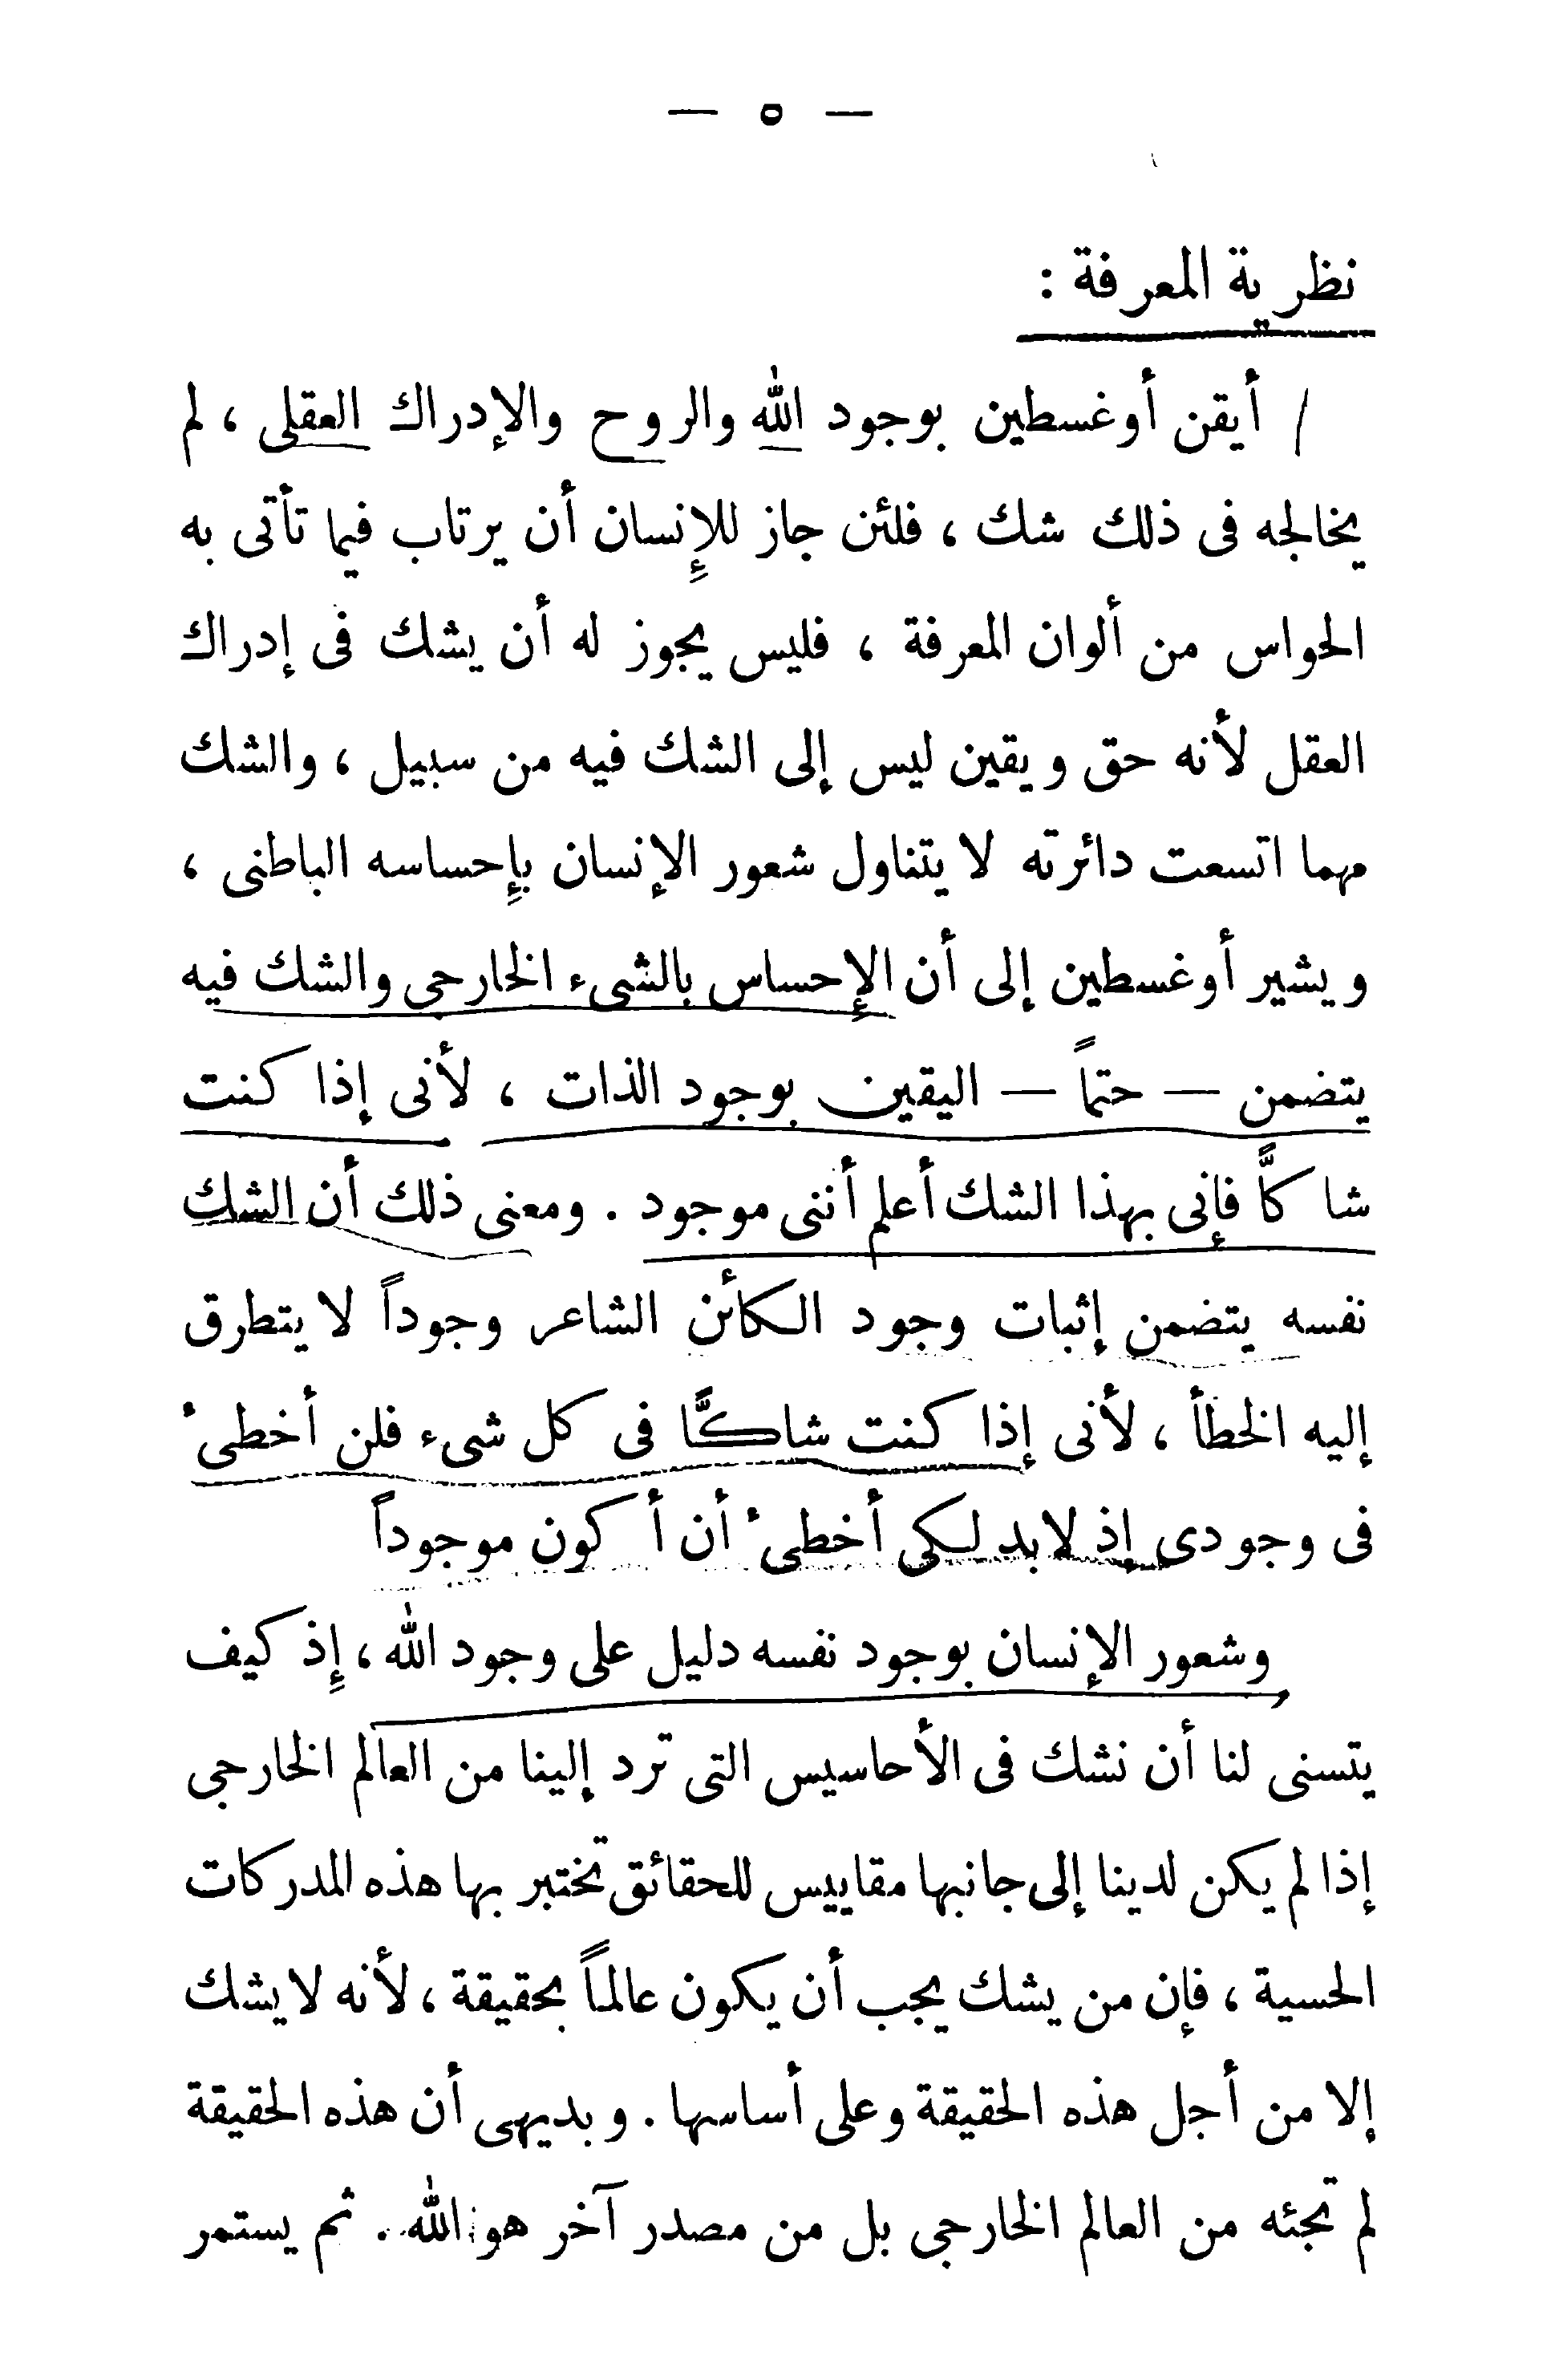 — ٥ —
نظرية المعرفة :
أيقن أوغسطين بوجود الله والروح والإدراك العقلى ، لم
يخالجه فى ذلك شك ، فلئن جاز للإِنسان أن يرتاب فيما تأتى به
الحواس من ألوان المعرفة ، فليس يجوز له أن يشك فى إدراك
العقل لأنه حق ويقين ليس إلى الشك فيه من سبيل ، والشك
مهما اتسعت دائرته لا يتناول شعور الإنسان بإِحساسه الباطنى ،
ويشير أوغسطين إلى أن الإِحساس بالشىء الخارجى والشك فيه
يتضمن — حتماً — اليقين بوجود الذات ، لأنى إذا كنت
شاكًّا فإنى بهذا الشك أعلم أننى موجود . ومعنى ذلك أن الشك
نفسه يتضمن إثبات وجود الكائن الشاعر وجوداً لا يتطرق
إليه الخطأ ، لأنى إذا كنت شاكًّا فى كل شىء فلن أخطىء
فى وجودى إذ لابد لكى أخطىء أن أكون موجوداً
وشعور الإنسان بوجود نفسه دليل على وجود الله ، إِذ كيف
يتسنى لنا أن نشك فى الأحاسيس التى ترد إلينا من العالم الخارجى
إذا لم يكن لدينا إلى جانبها مقاييس للحقائق تختبر بها هذه المدركات
الحسية ، فإن من يشك يجب أن يكون عالماً بحقيقة ، لأنه لا يشك
إلا من أجل هذه الحقيقة وعلى أساسها . وبديهى أن هذه الحقيقة
لم تجئه من العالم الخارجى بل من مصدر آخر هو الله . ثم يستمر